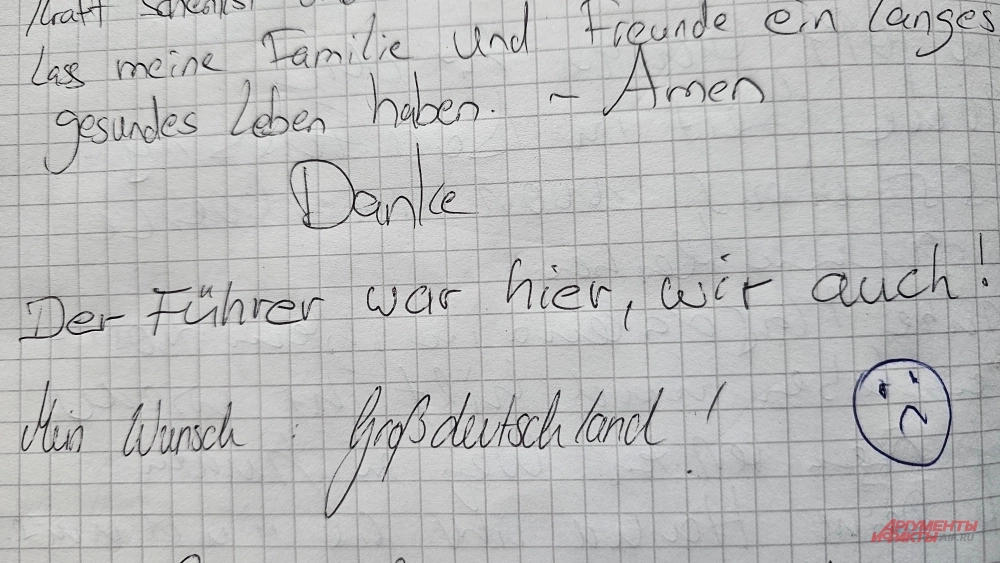 Kraft schenkst
Lass meine Familie und Freunde ein langes
gesundes Leben haben. – Amen
Danke
Der Führer war hier, wir auch!
Mein Wunsch : Großdeutschland !
АРГУМЕНТЫ
И ФАКТЫ AIF.RU